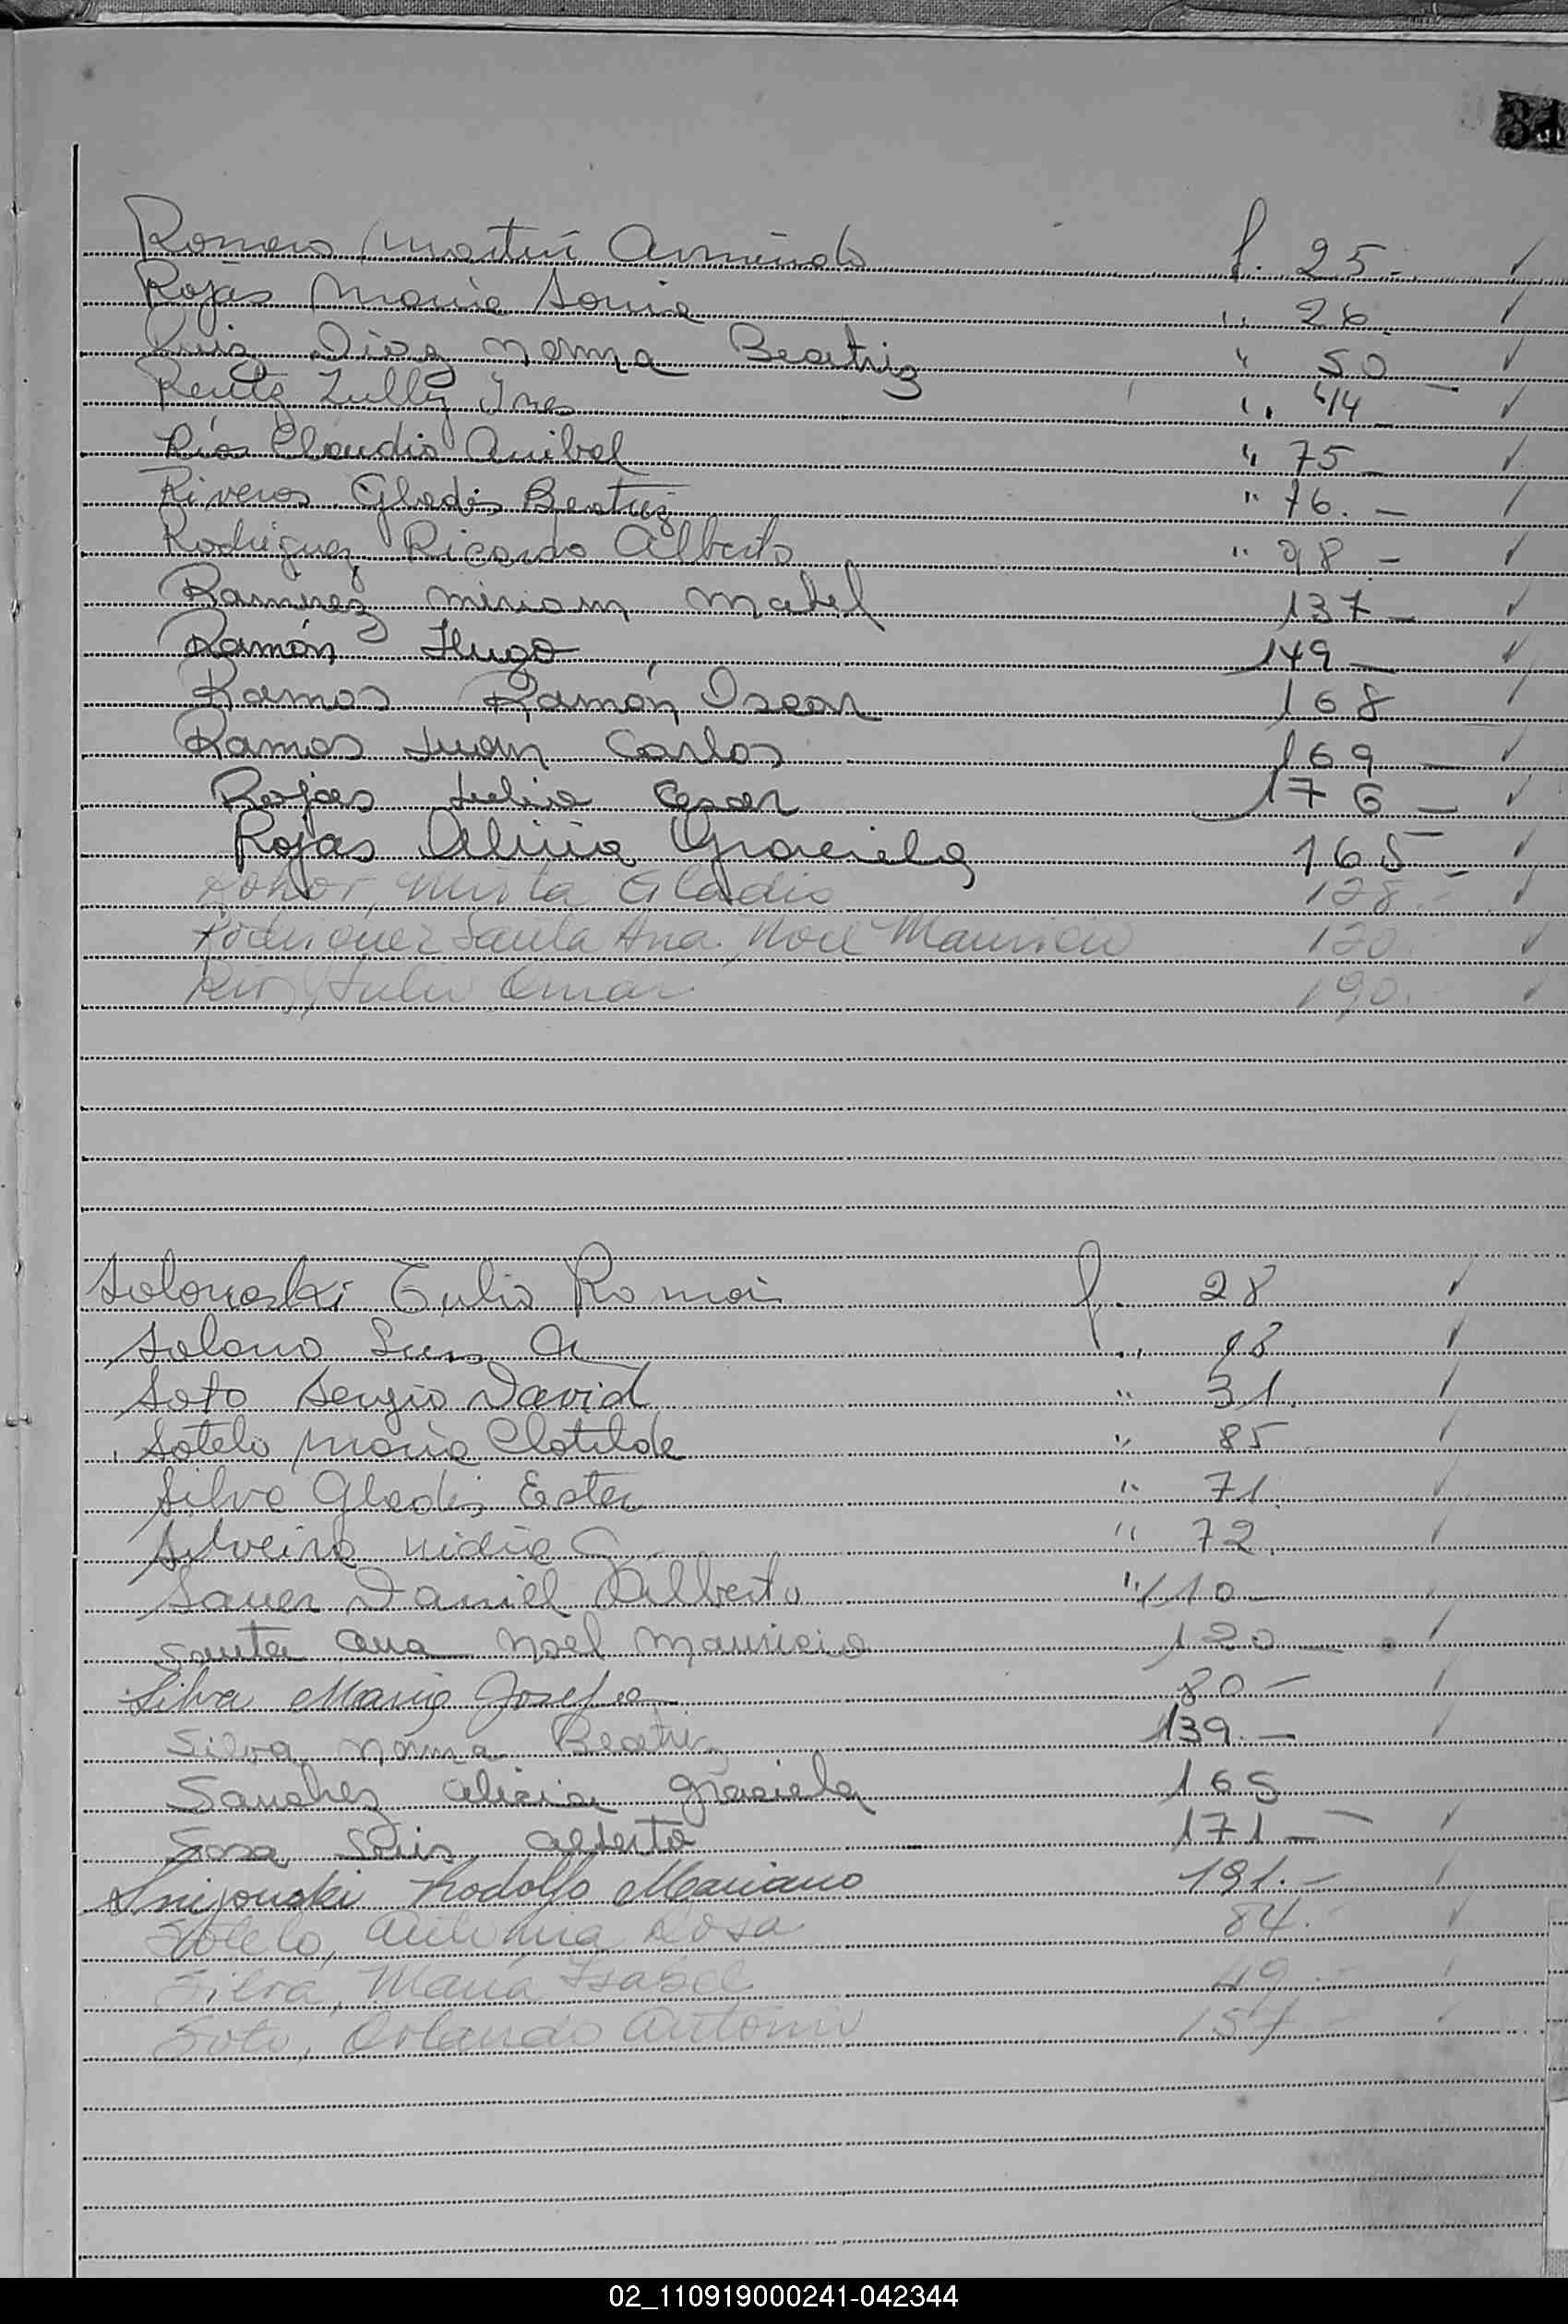 31
Romero Martín Armindo f. 25 - ✓
Rojas María Sonia " 26. ✓
Ruiz Díaz Norma Beatriz " 50 - ✓
Rentz Zully Ines " 44 - ✓
Ríos Claudio Anibal " 75 - ✓
Riveros Gladis Beatriz " 76. - ✓
Rodriguez Ricardo Alberto " 98 - ✓
Ramirez Miriam Mabel 137 - ✓
Ramón Hugo 149 - ✓
Ramos Ramón Oscar 168 ✓
Ramos Juan Carlos 169 - ✓
Rojas Julio Cesar 176 - ✓
Rojas Alicia Graciela 165 - ✓
Mirta Gladis 128.- ✓
Rodriguez Santa Ana, Noel Mauricio 120 ✓
Julio Omar 190. ✓
Julio Román f. 28 ✓
Solano Luis A " ✓
Soto Sergio David " 31. ✓
Sotelo María Clotilde " 85 ✓
Silva Gladis Ester " 71. ✓
Silveira Nidia " 72. ✓
Sauer Daniel Alberto " 110 - ✓
Santa Ana Noel Mauricio 120 - ✓
Silva María Josefa 80 - ✓
Silva Norma Beatriz 139. - ✓
Sanchez Alicia Graciela 165
Sosa Luis Alberto 171 - ✓
Rodolfo Mariano 191. - ✓
Sotelo, Antonia Rosa 84. - ✓
Silva, María Isabel 49 . - ✓
Soto, Orlando Antonio 157 - ✓
02_110919000241-042344